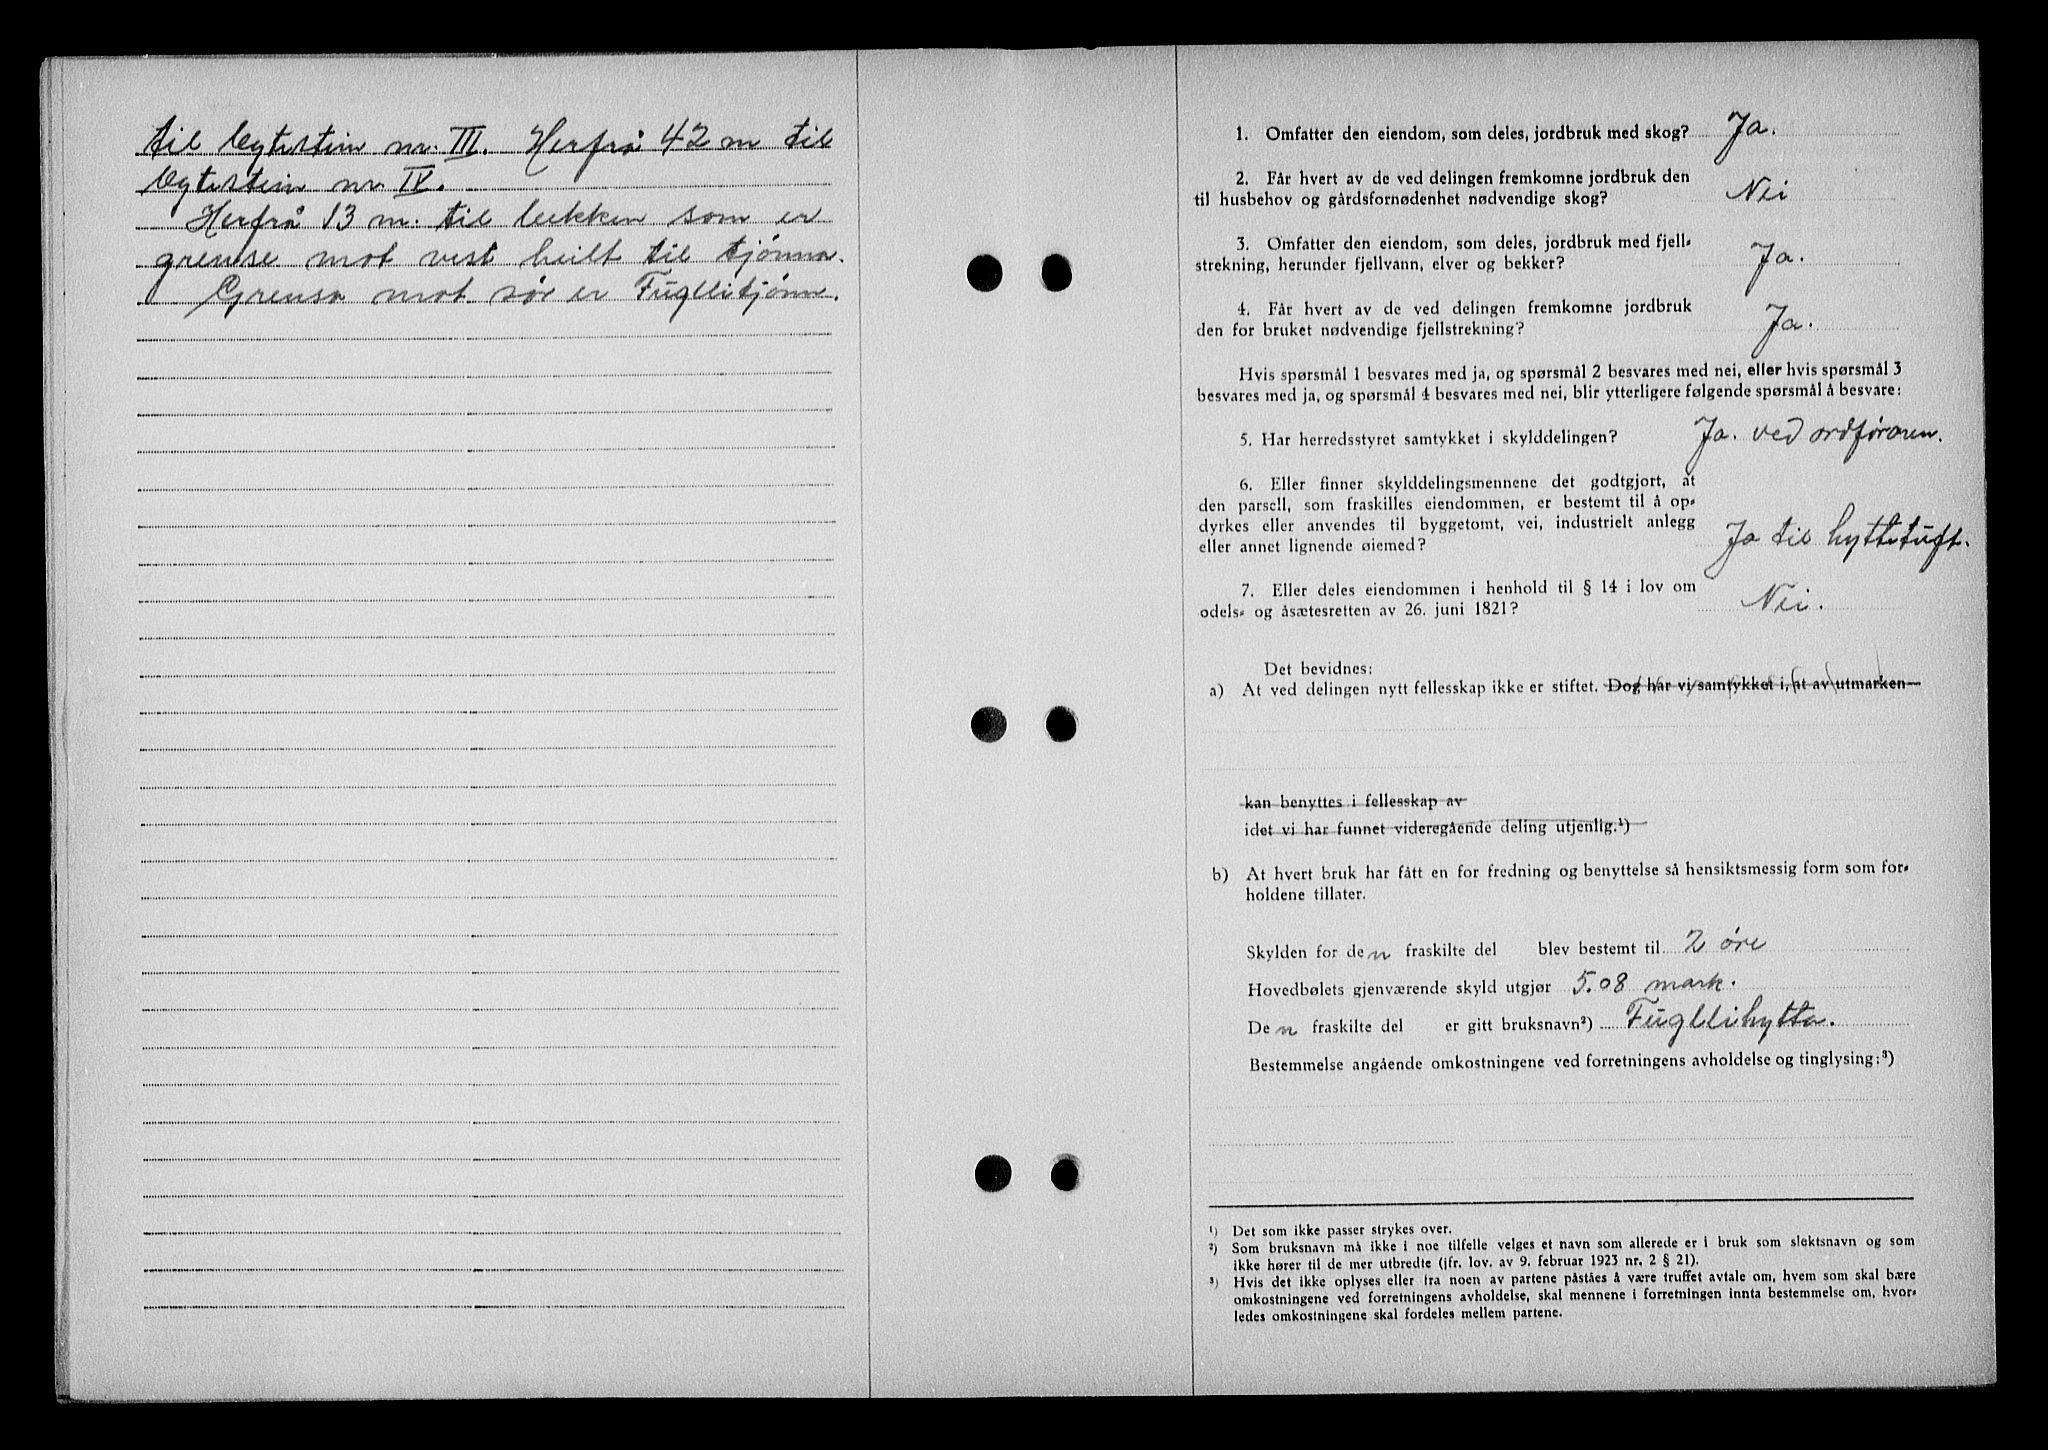 til bytestein nr. III. Herfrå 42 m til
bytestein nr. IV.
Herfrå 13 m. til bekken som er
grense mot vest heilt til tjønna.
Grensa mot sør er Fuglitjønn.
1. Omfatter den eiendom, som deles, jordbruk med skog? Ja.
2. Får hvert av de ved delingen fremkomne jordbruk den
til husbehov og gårdsfornødenhet nødvendige skog? Nei
3. Omfatter den eiendom, som deles, jordbruk med fjell-
strekning, herunder fjellvann, elver og bekker? Ja.
4. Får hvert av de ved delingen fremkomne jordbruk
den for bruket nødvendige fjellstrekning? Ja.
Hvis spørsmål 1 besvares med ja, og spørsmål 2 besvares med nei, eller hvis spørsmål 3
besvares med ja, og spørsmål 4 besvares med nei, blir ytterligere følgende spørsmål å besvare:
5. Har herredsstyret samtykket i skylddelingen? Ja. ved ordføraren.
6. Eller finner skylddelingsmennene det godtgjort, at
den parsell, som fraskilles eiendommen, er bestemt til å op-
dyrkes eller anvendes til byggetomt, vei, industrielt anlegg
eller annet lignende øiemed? Ja til hyttetuft.
7. Eller deles eiendommen i henhold til § 14 i lov om
odels- og åsætesretten av 26. juni 1821? Nei.
Det bevidnes:
a) At ved delingen nytt fellesskap ikke er stiftet. Dog har vi samtykket i, at av utmarken
kan benyttes i fellesskap av
idet vi har funnet videregående deling utjenlig.¹)
b) At hvert bruk har fått en for fredning og benyttelse så hensiktsmessig form som for-
holdene tillater.
Skylden for den fraskilte del blev bestemt til 2 øre
Hovedbølets gjenværende skyld utgjør 5.08 mark.
Den fraskilte del er gitt bruksnavn²) Fugllihytta.
Bestemmelse angående omkostningene ved forretningens avholdelse og tinglysing:³)
¹) Det som ikke passer strykes over.
²) Som bruksnavn må ikke i noe tilfelle velges et navn som allerede er i bruk som slektsnavn og som
ikke hører til de mer utbredte (jfr. lov. av 9. februar 1923 nr. 2 § 21).
³) Hvis det ikke oplyses eller fra noen av partene påståes å være truffet avtale om, hvem som skal bære
omkostningene ved forretningens avholdelse, skal mennene i forretningen innta bestemmelse om, hvor-
ledes omkostningene skal fordeles mellem partene.